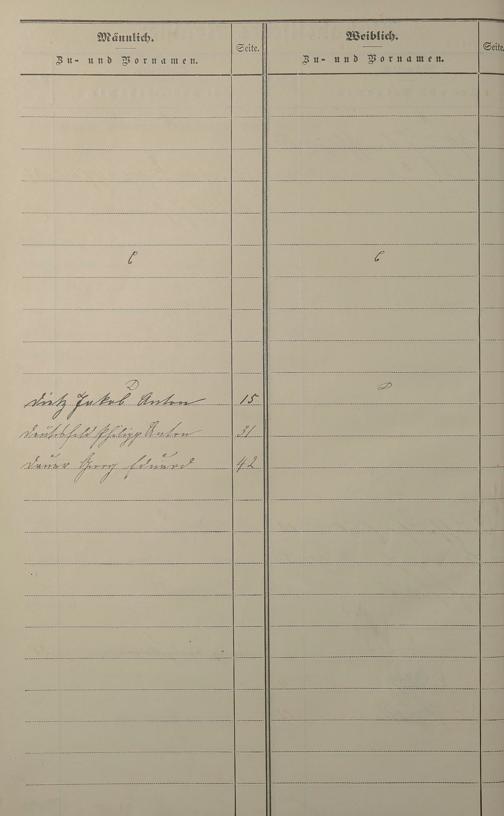 Männlich.
Zu- und Vornamen.
Seite.
Weiblich.
Zu- und Vornamen.
Seite.
C
C
D
D
Dietz Jakob Anton 15
Philipp Anton 31
Dauer Georg Eduard 42